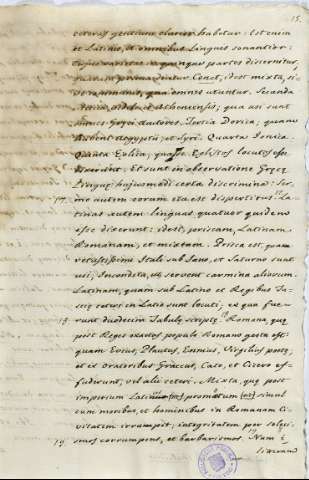 15.
ceteras gentium clarior habetur: Est enim
et Latinis, et omnibus linguis sonantior:
cujus varietas in quinque partes discernitur,
quarum prima dicitur Cene, idest mixta, si-
ve communis, qua omnes utuntur. Secunda
Attica, videlicet Atheniensis; qua usi sunt
omnes Greci Auctores. Tertia Dorica; quam
habent Egyptii, et Syri. Quarta Ionica.
Quinta Eolica; Eolistos locutos esse
dixerunt: Et sunt in observatione Grecę
linguę hujusmodi certa discrimina: Ser-
17. mo autem eorum ita est dispertitus. La-
tinas autem linguas quatuor quidem
esse dixerunt: idest, priscam, Latinam,
Romanam, et mixtam. Prisca est, quam
vetustissimi Itali sub Iano, et Saturno sunt
usi, Incondita, ut servent carmina aliorum.
Latinam, quam sub Latino et Regibus Tus-
cię ceteri in Latio sunt locuti; ex qua fue-
18. runt duodecim Tabulę scriptę. Romana, quę
post Reges exactos populo Romano gesta est:
quam Evius, Plautus, Ennius, Virgilius poetę,
et ex oratoribus Graccus, Cato, et Cicero ef-
fuderunt, vel alii ceteri. Mixta, quę post
imperium Latinum promotum simul
cum moribus, et hominibus in Romanam Ci-
vitatem irrumpit, integritatem per solęci-
19. smos corrumpens, et barbarismos. Nam i-